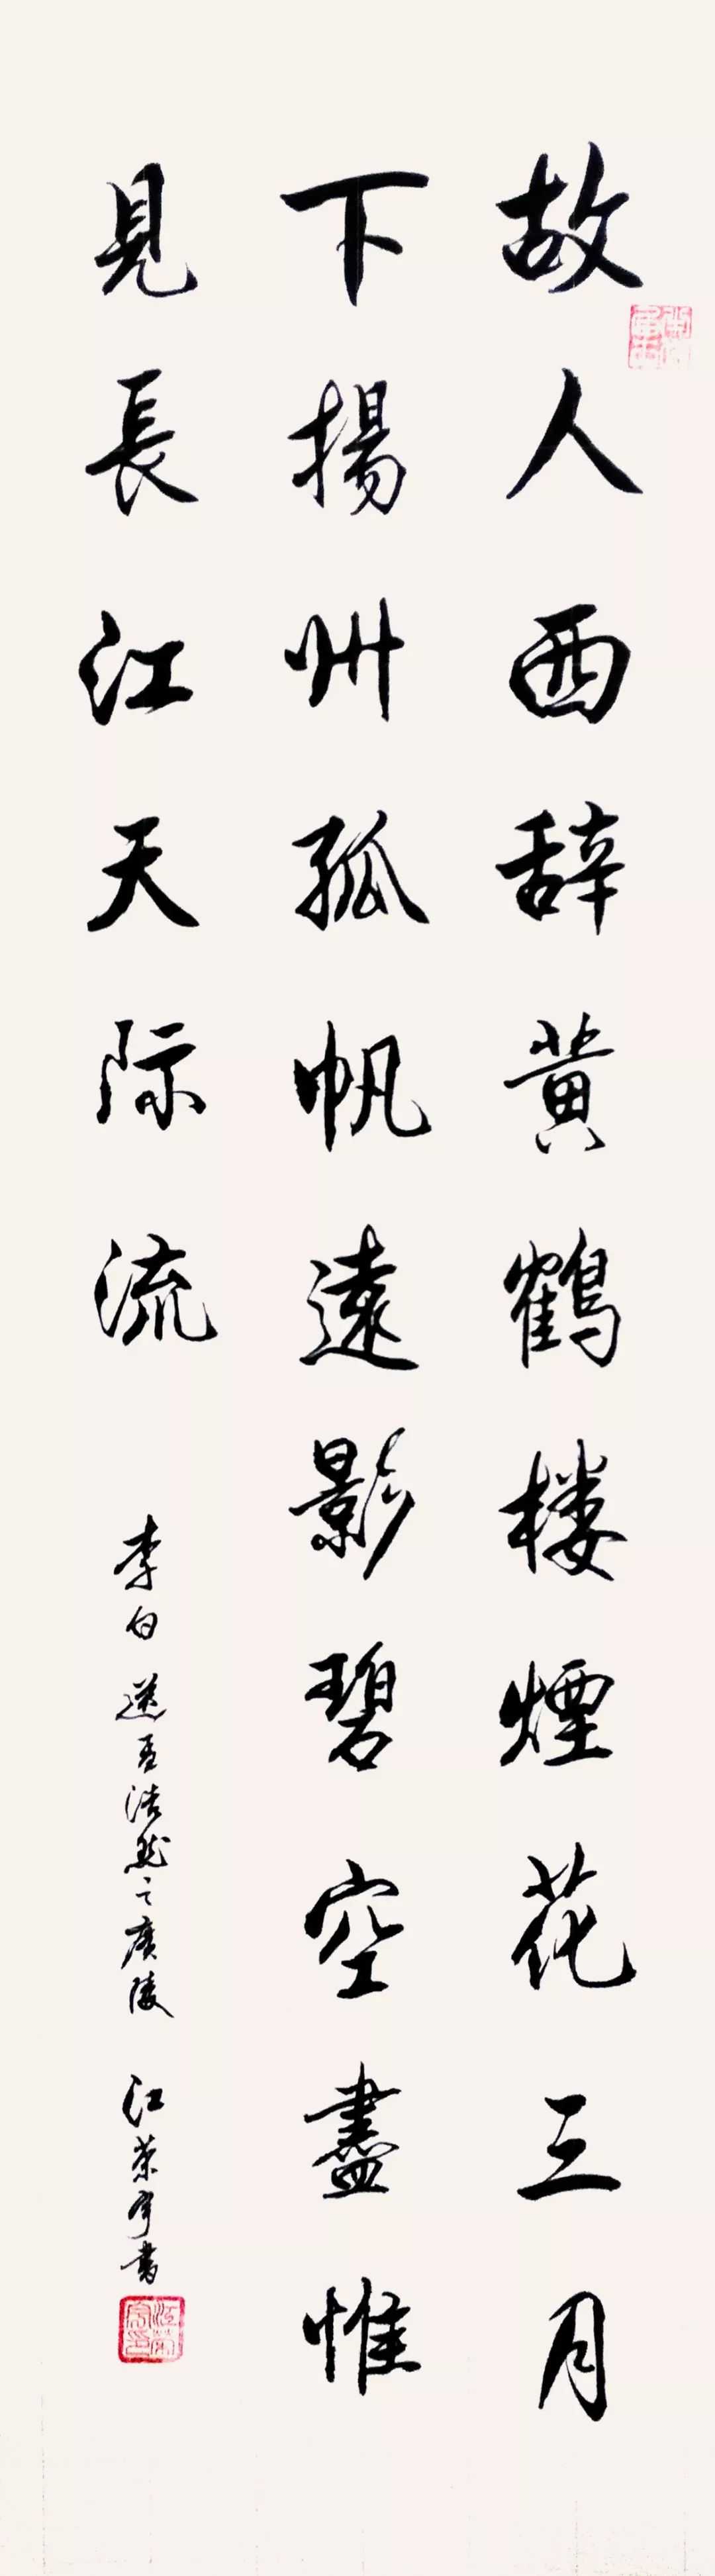 故人西辞黄鶴楼煙花三月
下揚州孤帆遠影碧空盡惟
見長江天际流
李白 送孟浩然之廣陵 江荣宇書